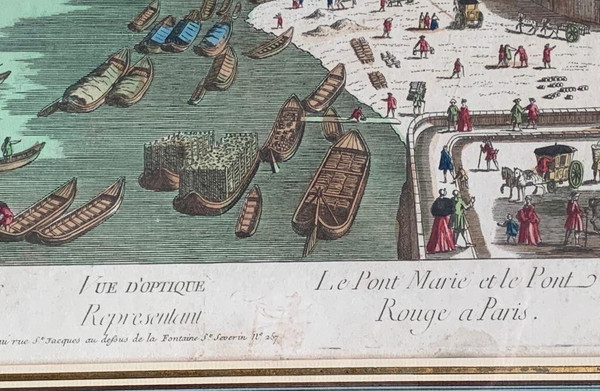 VUE D'OPTIQUE
Representant
Le Pont Marie et le Pont
Rouge a Paris.
rue St. Jacques au dessus de la Fontaine St. Severin No. 257